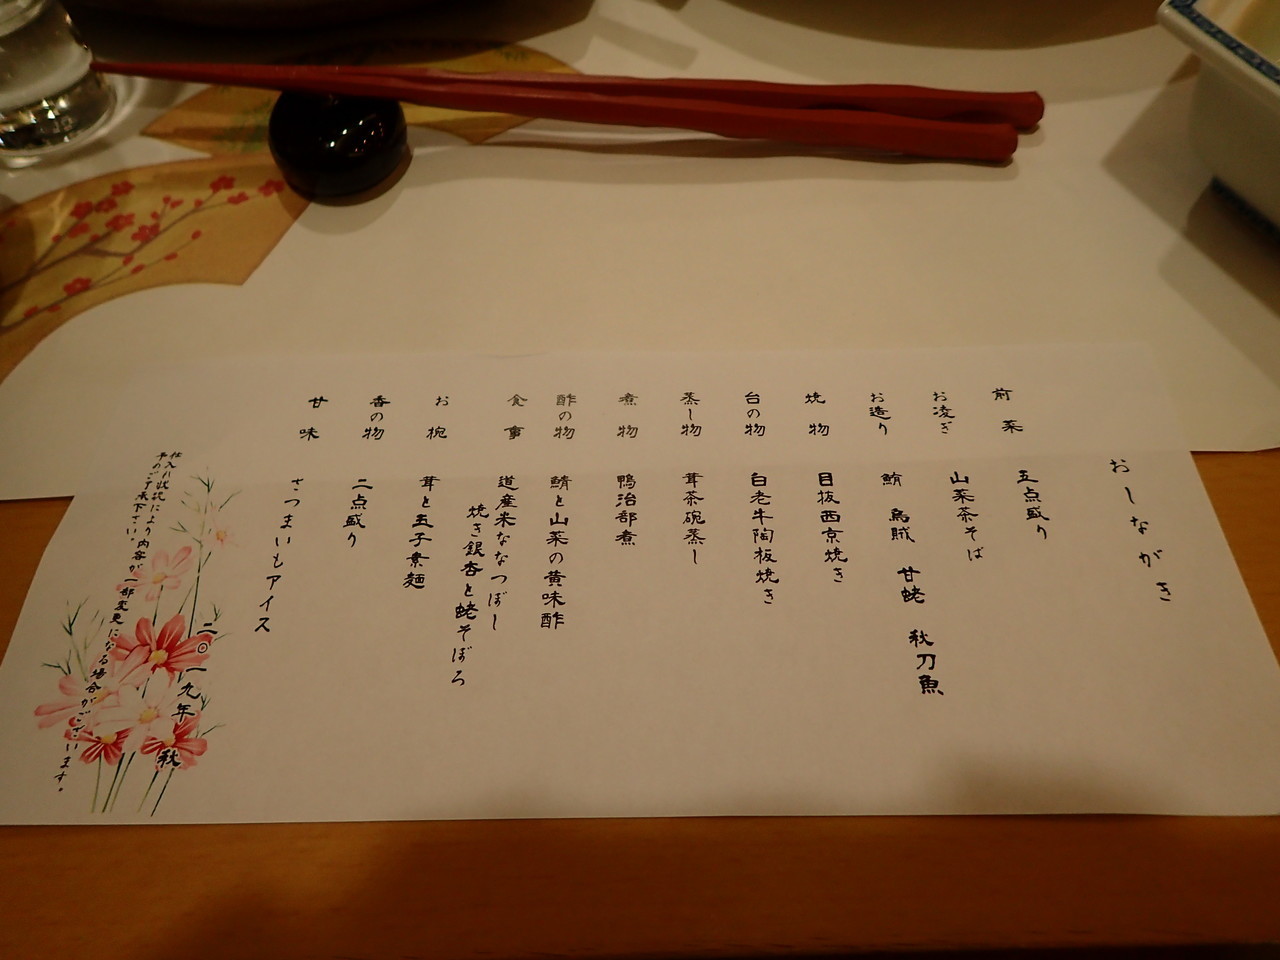 おしながき
前菜 五点盛り
お凌ぎ 山菜茶そば
お造り 鮪 烏賊 甘蛯 秋刀魚
焼物 目抜西京焼き
台の物 白老牛陶板焼き
蒸し物 茸茶碗蒸し
煮物 鴨治部煮
酢の物 鯖と山菜の黄味酢
食事 道産米ななつぼし
焼き銀杏と蛯そぼろ
お椀 茸と玉子素麺
香の物 二点盛り
甘味 さつまいもアイス
二〇一九年 秋
仕入れ状況により内容が一部変更になる場合がございます。
予めご了承下さい。